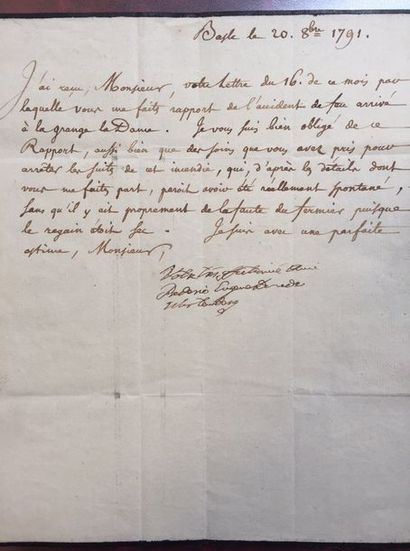 Basle le 20. 8bre 1791.
J'ai reçu, Monsieur, votre lettre du 16. de ce mois par
laquelle vous me faits rapport de l'accident de feu arrivé
à la grange la Dame. Je vous suis bien obligé de ce
Rapport, aussi bien que des soins que vous avez pris pour
arrêter les suits de cet incendie, qui, d'après les détails dont
vous me faits part, paroit avoir été réellement spontané,
sans qu'il y ait proprement de la faute du fermier puisque
le regain étoit sec. Je suis avec une parfaite
estime, Monsieur,
Votre très
Frederic Eugene Duc de
Wirtemberg